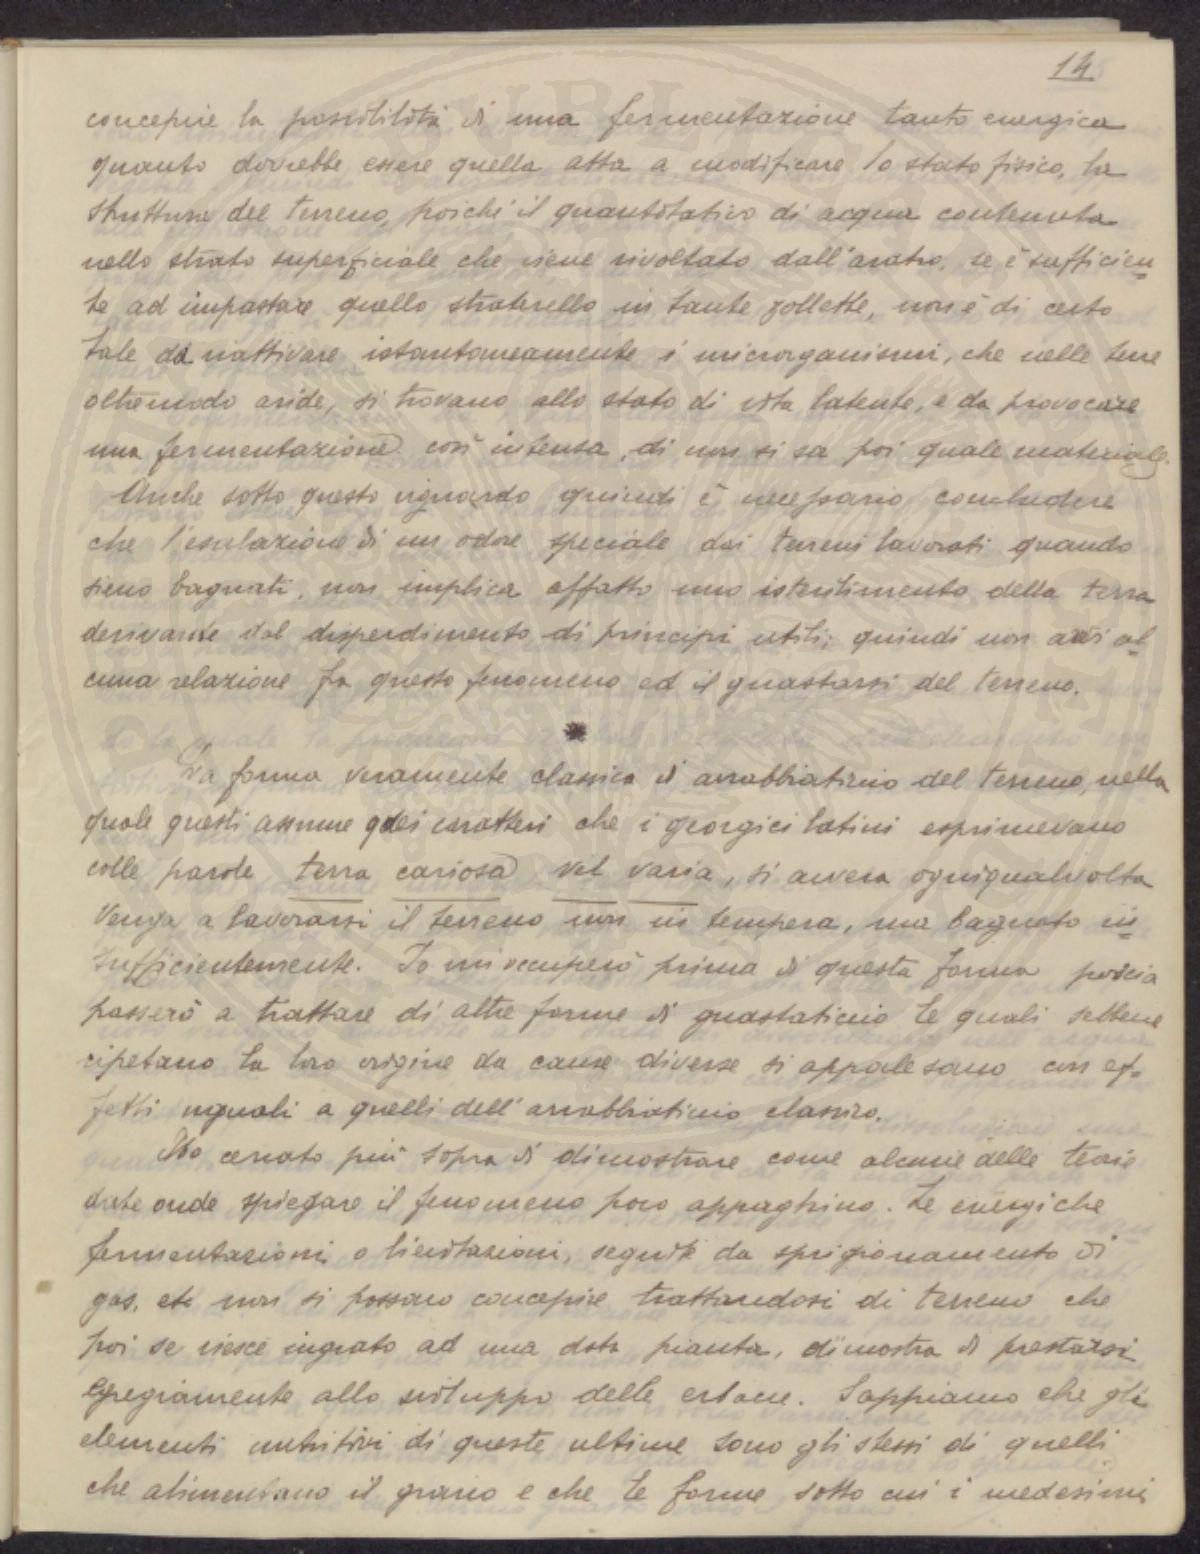 14
concepire la possibilità di una fermentazione tanto energica
quanto dovrebbe essere quella atta a modificare lo stato fisico, la
struttura del terreno, poiché il quantitativo di acqua contenuta
nello strato superficiale che viene rivoltato dall'aratro, se è sufficien-
te ad impastare quello straterello in tante zollette, non è di certo
tale da riattivare istantaneamente i microrganismi, che nelle terre
oltremodo aride, si trovano allo stato di vita latente, e da provocare
una fermentazione così intensa, di non si sa poi quale materiale.
Anche sotto questo riguardo quindi è necessario concludere
che l'esalazione di un odore speciale dai terreni lavorati quando
sieno bagnati, non implica affatto uno isterilimento della terra
derivante dal disperdimento di principi utili; quindi non avvi al-
cuna relazione fra questo fenomeno ed il guastarsi del terreno.
*
La forma veramente classica di arrabbiaticcio del terreno, nella
quale questi assume quei caratteri che i georgici latini esprimevano
colle parole terra cariosa vel varia, si avvera ogniqualvolta
venga a lavorarsi il terreno non in tempera, ma bagnato in-
sufficientemente. Io mi occuperò prima di questa forma poscia
passerò a trattare di altre forme di guastaticcio le quali sebbene
ripetano la loro origine da cause diverse si appalesano con ef-
fetti uguali a quelli dell'arrabbiaticcio classico.
Ho cercato più sopra di dimostrare come alcune delle teorie
date onde spiegare il fenomeno poco appaghino. Le energiche
fermentazioni o lievitazioni, seguite da sprigionamento di
gas, etc non si possono concepire trattandosi di terreno che
poi se riesce ingrato ad una data pianta, dimostra di prestarsi
egregiamente allo sviluppo delle erbacee. Sappiamo che gli
elementi nutritivi di queste ultime sono gli stessi di quelli
che alimentano il grano e che le forme sotto cui i medesimi